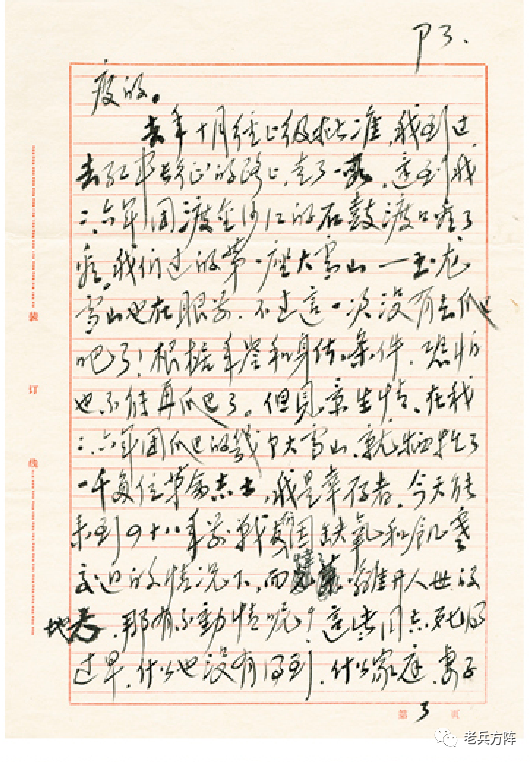 P3.
疲的。
去年十月经上级批准，我到过
去红军长征的路上，走了一段，走到我
二、六军团渡金沙江的石鼓渡口看了
看。我们过的第一座大雪山—玉龙
雪山也在眼前，不过这一次没有去爬
吧了！根据年岁和身体条件，恐怕
也不能再爬它了。但见景生情，在我
二、六军团爬过的几个大雪山，就牺牲了
一千多位革命志士，我是幸存者，今天能
来到四十八年前战友因缺氧和饥寒
交迫的情况下，而离开人世的
地方，那有不动情呢？这些同志死得
过早，什么也没有得到，什么家庭、妻子
装
订
线
第 3 页
老兵方阵